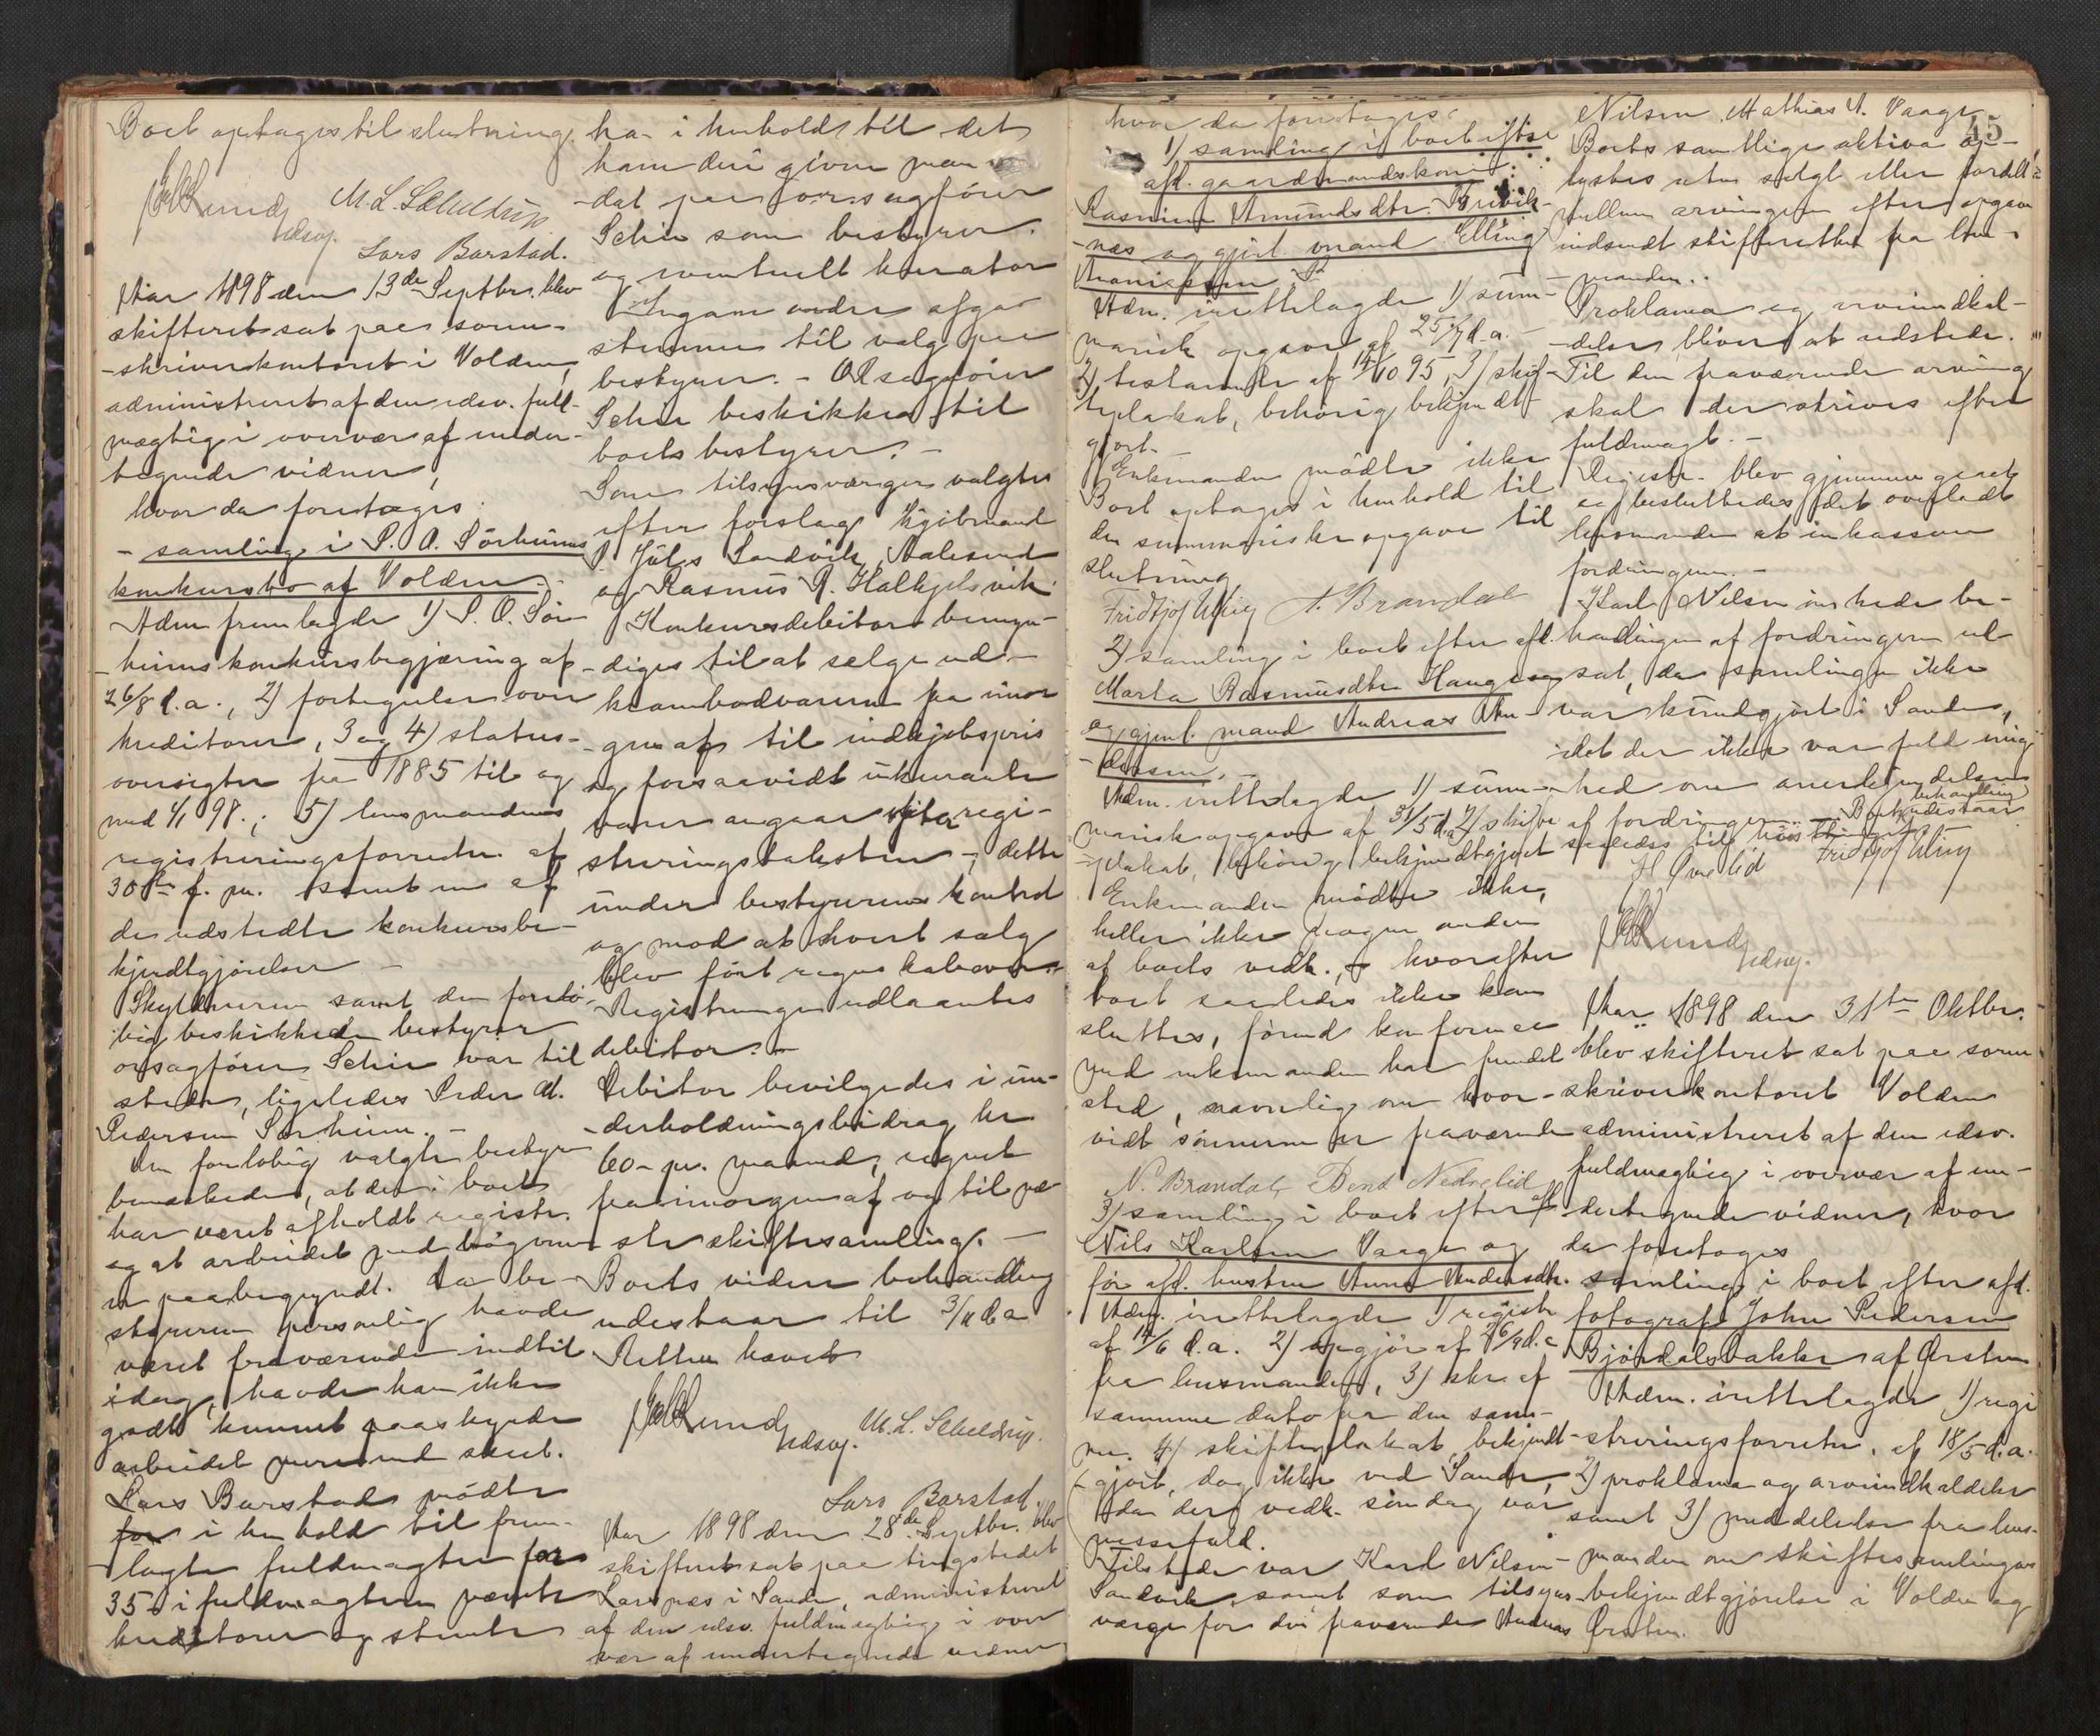 Boet optages til slutning.
M. L. Scheldrup
edsvg.
Lars Barstad.
Aar 1898 den 13de Septbr. blev
skifteret sat paa soren-
-skriverkontoret i Volden,
administreret af den edsv. fuld-
mægtig i overvær af under-
tegnede vidner,
hvor da foretoges
- samling i P. A. Sörheims
konkursbo af Volden.
Adm fremlagde 1) P. A. Sör-
-heims konkursbegjæring af
26/8 d.a., 2) fortegnelse over
kreditorer, 3 og 4) status-
oversigter fra 1885 til og
med 1/1 98.; 5) lensmandens
registreringsforretn. af
30te f. m. samt en af
de udstedte konkursbe-
kjendtgjörelser -
Skyldneren samt den forelö-
big beskikkede bestyrer
orsagförer Schie var til
stede, ligeledes Peder M.
Pedersen Sørheim. -
Den forelöbig valgte bestyrer
bemærkede, at der i boet
har været afholdt registr.
og at arbeidet med bögerne
er paabegyndt. Da be-
styreren personlig havde
været fraværende indtil
idag, havde han ikke
godt kunnet paaskynde
arbeidet mere end skeet.
Lars Barstad mödte
for i henhold til frem-
-lagte fuldmagter for
35 i fuldmagten nævnte
kreditorer og stemte
ha- i henhold til det
ham deri givne man
-dat paa orsagförer
Schie som bestyrer.
og eventuelt kurator
Ingen andre afgav
stemmer til valg paa
bestyrer. - ORsagförer
Schie beskikkes til
boets bestyrer. -
Som tilsynsværger valgtes
efter forslag kjöbmand
P. Jul.s Sandvik, Aalesund
og Rasmus R. Halkjelsvik.
Konkursdebitor bemyn-
-diges til at selge ud-
krambodvarerne fra imor
gen af til indkjöbspris
og forsaavidt ukurante
varer angaar efter regi-
streringstaksten -, dette
under bestyrerens kontrol
og mod at hvert salg
blev fört regnskab over.
Registreringen udlaantes
debitor. -
Debitor bevilgedes i un-
-derholdningsbidrag kr
60- pr. maaned, regnet
fra imorgen af og til næ
ste skiftesamling. -
Boets videre behandling
udestaar til 3/11 d.a
Retten hævet
edsvg. M. L. Scheldrup.
Lars Barstad.
Aar 1898 den 28de Septbr. blev
skifteret sat paa tingstedet
Larsnæs i Sande, administreret
af den edsv. fuldmægtig i over
vær af undertegnede vidner
hvor da foretoges:
1) samling i boet efter
afd. gaardmandskone
Rasmine Amundsdtr. Kvivik-
-næs og gjenl. mand Elling
Adm. irettelagde 1) sum-
marisk opgave af 25/7 d.a. -
2) testamente af 14/10 95, 3) skif-
teplakat, behörig bekjendt-
gjort. -
Enkemanden mödte ikke
Boet optages i henhold til
den summariske opgave til
slutning
Fridtjof Ulrig N. Brandal
2) samling i boet efter afd.
Marta Rasmusdtr Haugen
og gjenl. mand Andreas Am-
-dssen.
Adm. irettelagde 1) sum-
marisk opgave af 31/5 d.a 2) skifte
-plakat, behörig bekjendtgjort
Enkemanden mödte ikke,
heller ikke nogen anden
af boets vedk., - hvorefter
boet saaledes ikke kan
sluttes, förend konference
med enkemanden har fundet
sted, navnlig om hvor-
vidt sönnerne er fraværende
N. Brandal Bend Nedrelid
3) samling i boet efter afd
Nils Karlsen Vaage og
för afd. hustru Anne Andersdtr.
Adm. irettelagde 1) registr
af 14/6 d.a. 2) opgjör af 26/9 d.a
fra lensmanden, 3) skr. af
samme dato fra den sam-
me. 4) skifteplakat bekjendt-
gjort, dog ikke ved Sande,
da den vedk. söndag var
messefald.
Tilstede var Karl Nilsen
Sandvik, samt som tilsyns-
værge for den fraværende Andreas
45
Nilsen, Mathias A. Vaage
Boets samtlige aktiva op-
lystes uten solgt eller fordelt
mellem arvingerne efter opgave
indsendt skifteretten fra lens-
manden.
Proklama og arveindkal-
-delse bliver at udstede.
Til den fraværende arving
skal der skrives efter
fuldmagt. -
Registr. blev gjennemgaaet
og besluttedes det overladt
lensmanden at inkassere
fordringerne. -
Karl Nilsen önskede be-
handlingen af fordringerne ud
sat, da samlingen ikke
var kundgjort i Sande,
idet der ikke var fuld enig
-hed om anerkjendelsen
af fordringerne. - Boets behandling udestaar
saaledes til höstthinget.
H. Överlid Fridtjof Ulrig
edsvg.
Aar 1898 den 31te Oktbr.
blev skifteret sat paa soren
skriverkontoret Volden
administreret af den edsv.
fuldmægtig i overvær af un-
dertegnede vidner, hvor
da foretoges
samling i boet efter afd.
fotograf John Pedersen
Bjørdalsbakke af Ørsten
Adm. irettelagde 1) regi
-streringsforretn. af 18/5 d.a.
2) proklama og arveindkaldelse
samt 3) meddelelse fra lens-
manden om skiftesamlingens
bekjendtgjörelse i Volden og
Örsten.